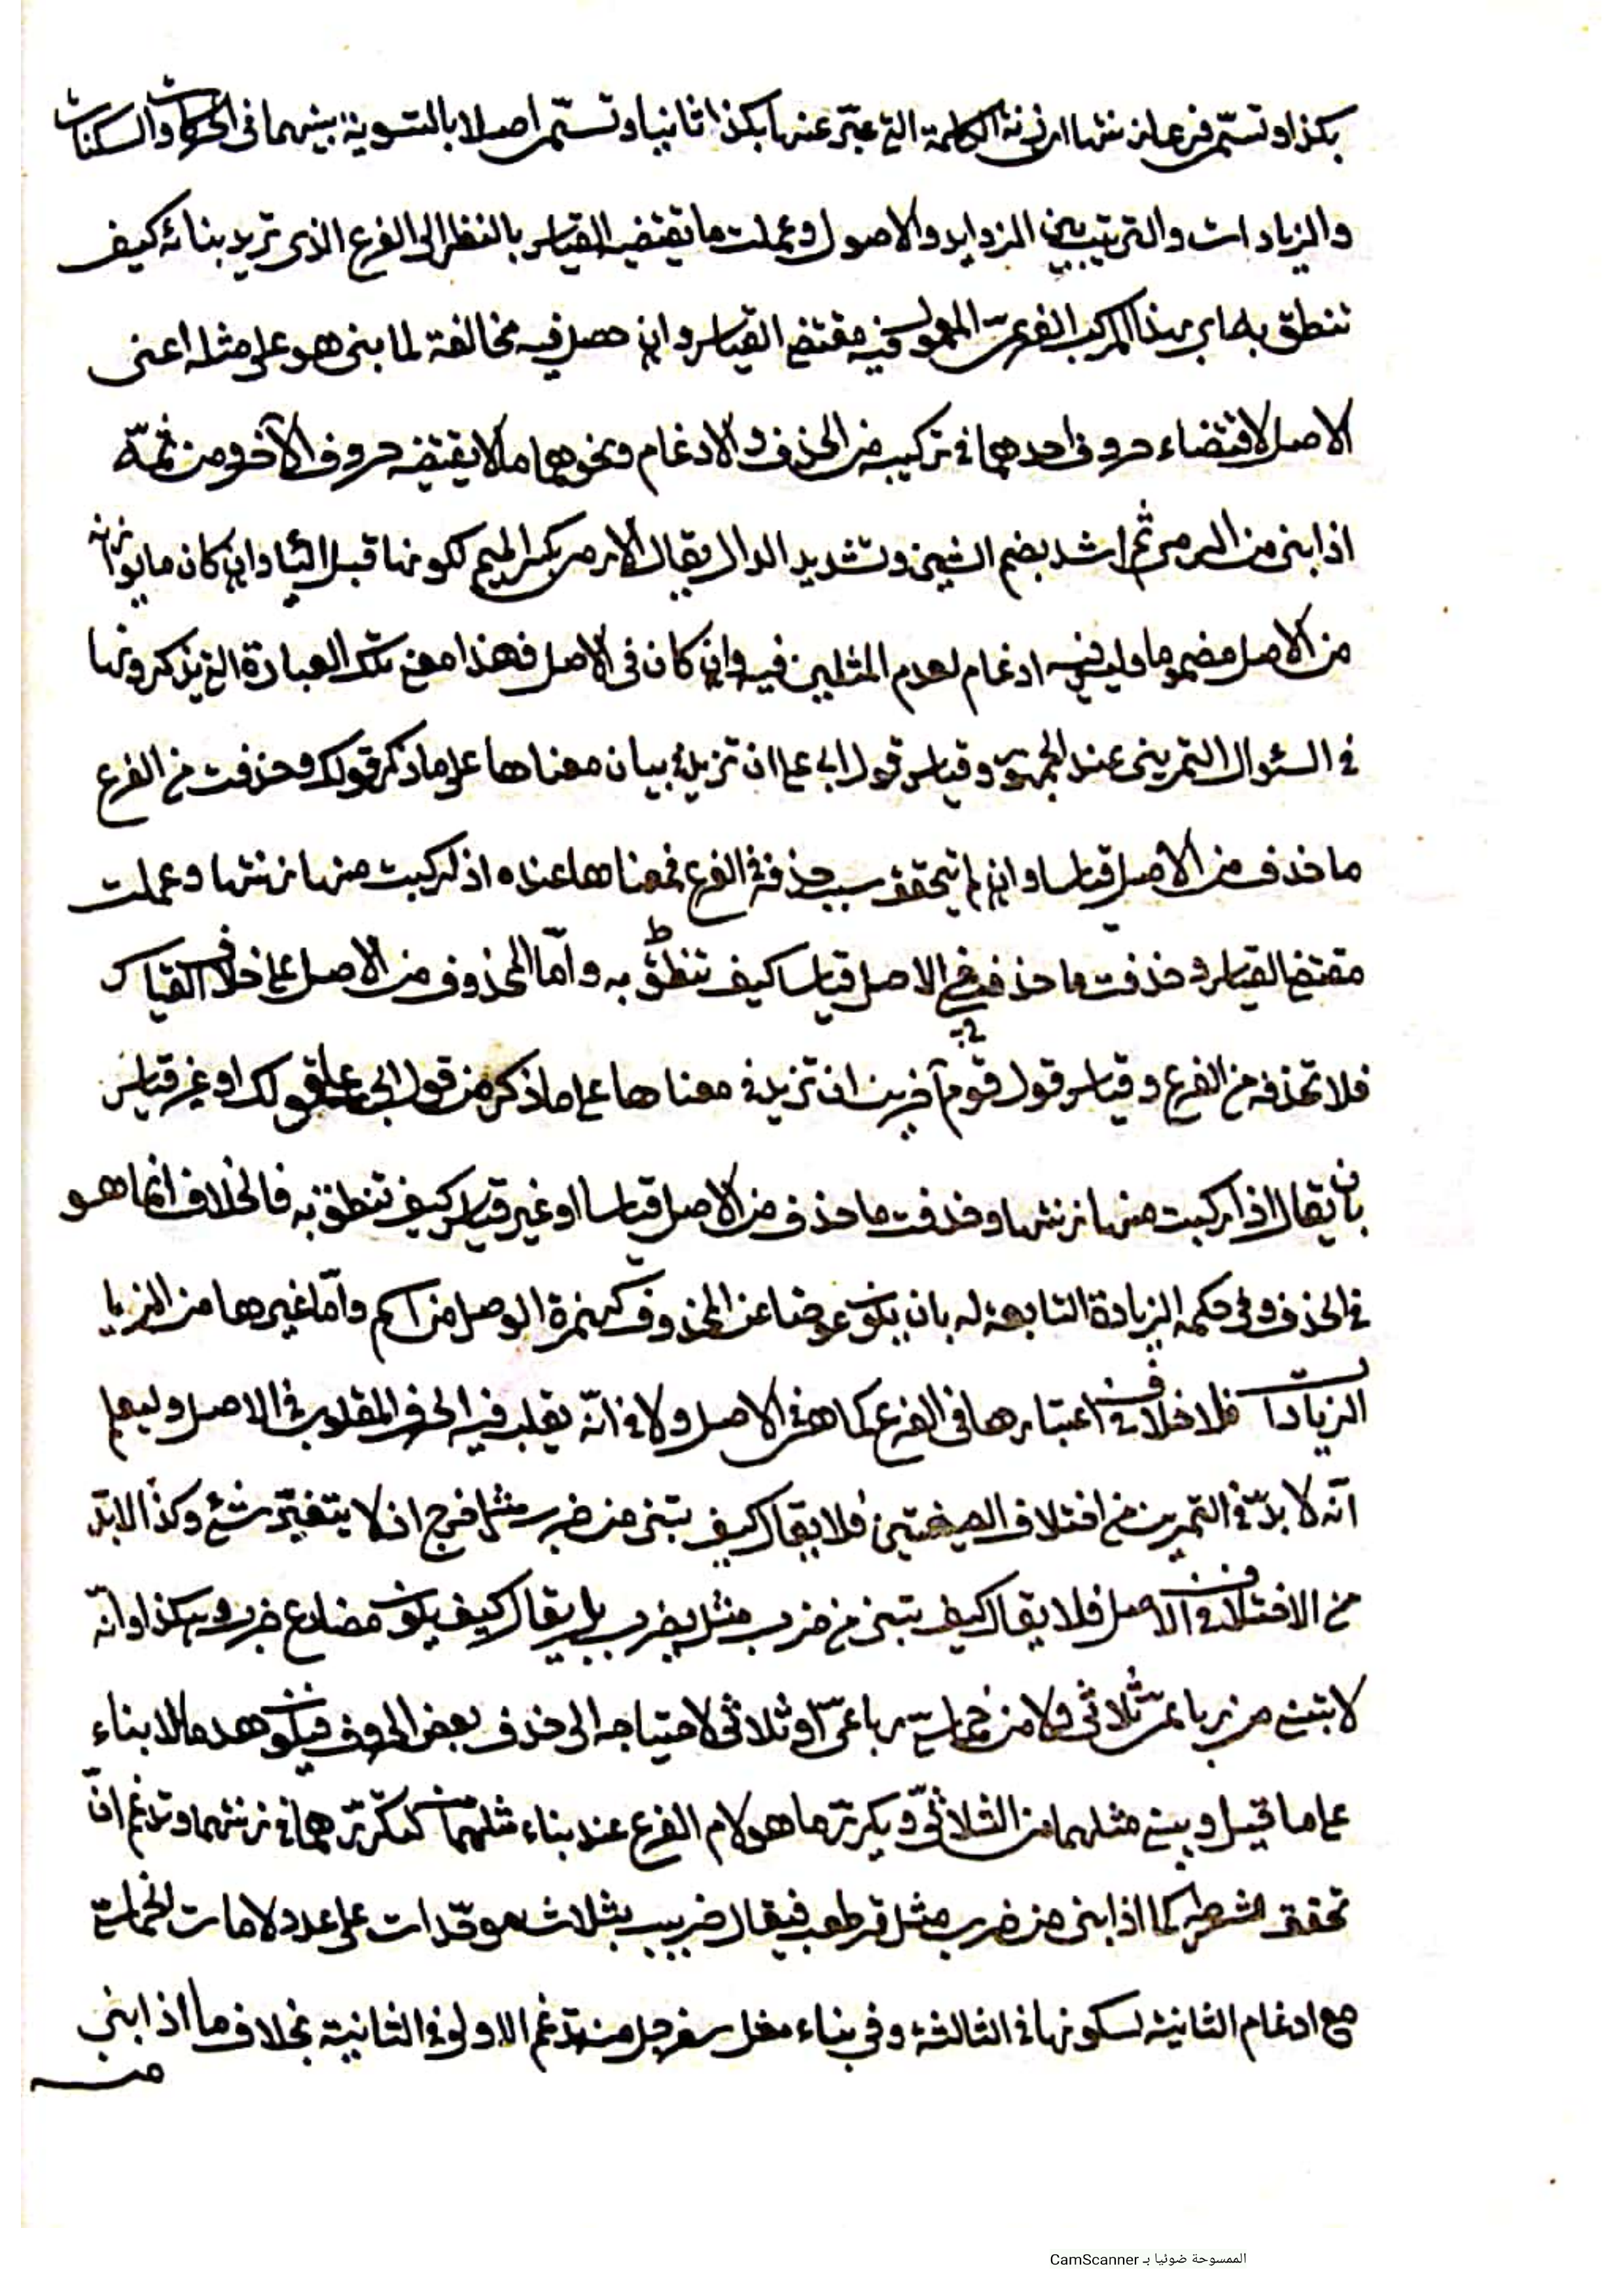 بكذا وتسمى فرعا زنتها اى زنة الكلمة التى عبّر عنها بكذا ثانيا وتسمّى اصلا بالتسوية بينهما فى الحركات والسكنات
والزيادات والترتيب بين الزوايد والاصول وعملت ما يقتضيه القياس بالنظر الى الفرع الذى تريد بنائه كيف
تنطق به اى بهذا المركب الفرعىّ المعمول فيه مقتضى القياس وان حصل فيه مخالفة لما بنى هو على مثله اعنى
الاصل لاقتضاء حروف احدهما فى تركيبه من الحذف والادغام ونحوهما ما لا يقتضيه حروف الآخر ومن ثمّة
اذا بنى من الرمى مثل اشد بضم الشين وتشديد الدال يقال الارمى بكسر الميم لكونها قبل الياء وان كان ما يوازنه
من الاصل مضموما وليس فيه ادغام لعدم المثلين فيه وان كان فى الاصل فهذا معنى تلك العبارة التى يذكرونها
فى السئوال التمرينى عند الجمهور وقياس قول ابى على ان تزيد فى بيان معناها على ما ذكر قولك وحذفت من الفرع
ما حذف من الاصل قياسا وان لم يتحقق سبب حذفه فى الفرع فمعناها عنده اذا ركبت منها زنتها وعملت
مقتضى القياس وحذفت ما حذف من الاصل قياسا كيف تنطق به وامّا المحذوف من الاصل على خلاف القياس
فلا تحذفه من الفرع وقياس قول قوم آخرين ان تزيد فى معناها على ما ذكر من قول ابى على قولك او غير قياس
بان يقال اذا ركبت منها زنتها وحذفت ما حذف من الاصل قياسا او غير قياس كيف تنطق به فالخلاف انما هو
فى الحذف وفى حكمه الزيادة التابعة له بان يكون عوضا عن المحذوف كهمزة الوصل من اسم وامّا غيرها من المزيا
الزيادات فلا خلاف فى اعتبارها فى الفرع كما هى فى الاصل ولا فى انّه يقلب فيه الحرف المقلوب فى الاصل وليعلم
انّه لا بدّ فى التمرين من اختلاف الصيغتين فلا يقال كيف تبنى من ضرب مثل خرج اذ لا يتغيّر شئ وكذا لا بدّ
من الاختلاف فى الاصل فلا يقال كيف تبنى من ضرب مثل يضرب بل يقال كيف يكون مضارع ضرب وهكذا وانّه
لا تبنى من رباعىّ ثلاثى ولا من خماسىّ رباعىّ او ثلاثى لاحتياجه الى حذف بعض الحروف فيكون هدما لا بناء
على ما قيل ويبنى مثلهما من الثلاثىّ ويكرّر ما هو لام الفرع عند بناء مثلهما كتكرّرهما فى زنتهما وتدغم ان
تحقق شرطه كما اذا بنى من ضرب مثل قرطعب فيقال ضربب بثلاث موحّدات على عدد لامات الخماسىّ
مع ادغام الثانية لسكونها فى الثالثة وفى بناء مثل سفرجل منه تدغم الاولى فى الثانية بخلاف ما اذا بنى
من
الممسوحة ضوئيا بـ CamScanner